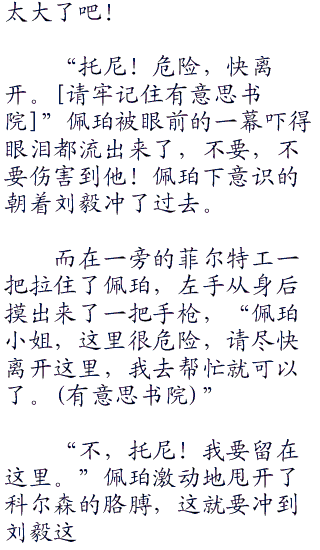 太大了吧！
“托尼！危险，快离
开。[请牢记住有意思书
院]”佩珀被眼前的一幕吓得
眼泪都流出来了，不要，不
要伤害到他！佩珀下意识的
朝着刘毅冲了过去。
而在一旁的菲尔特工一
把拉住了佩珀，左手从身后
摸出来了一把手枪，“佩珀
小姐，这里很危险，请尽快
离开这里，我去帮忙就可以
了。(有意思书院)”
“不，托尼！我要留在
这里。”佩珀激动地甩开了
科尔森的胳膊，这就要冲到
刘毅这